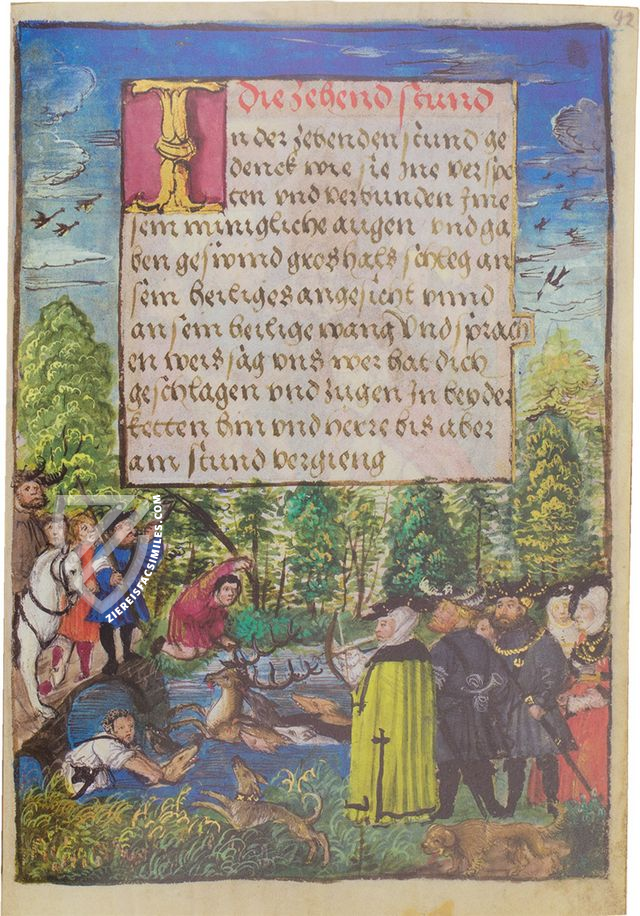 92
die zehend stund
In der zehenden stund ge
denck wie sie ine verspo
ten vnd verbunden Ime
sein minigliche augen vnd ga
ben geswind gros hals schleg an
sein heiliges angesicht vnnd
an sein heilige wang Vnd sprach
en weissag vns wer hat dich
geschlagen vnd zugen In bey der
ketten hin vnd herre bis aber
am stund vergieng
ZIEREISFACSIMILES.COM